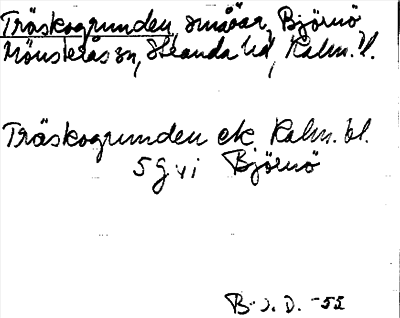 Träskogrunden, småöar, Björnö
Mönsterås sn, Stranda hd, Kalm. l.
Träskogrunden ek Kalm. bl.
5 g vi Björnö
B. J. D. -55